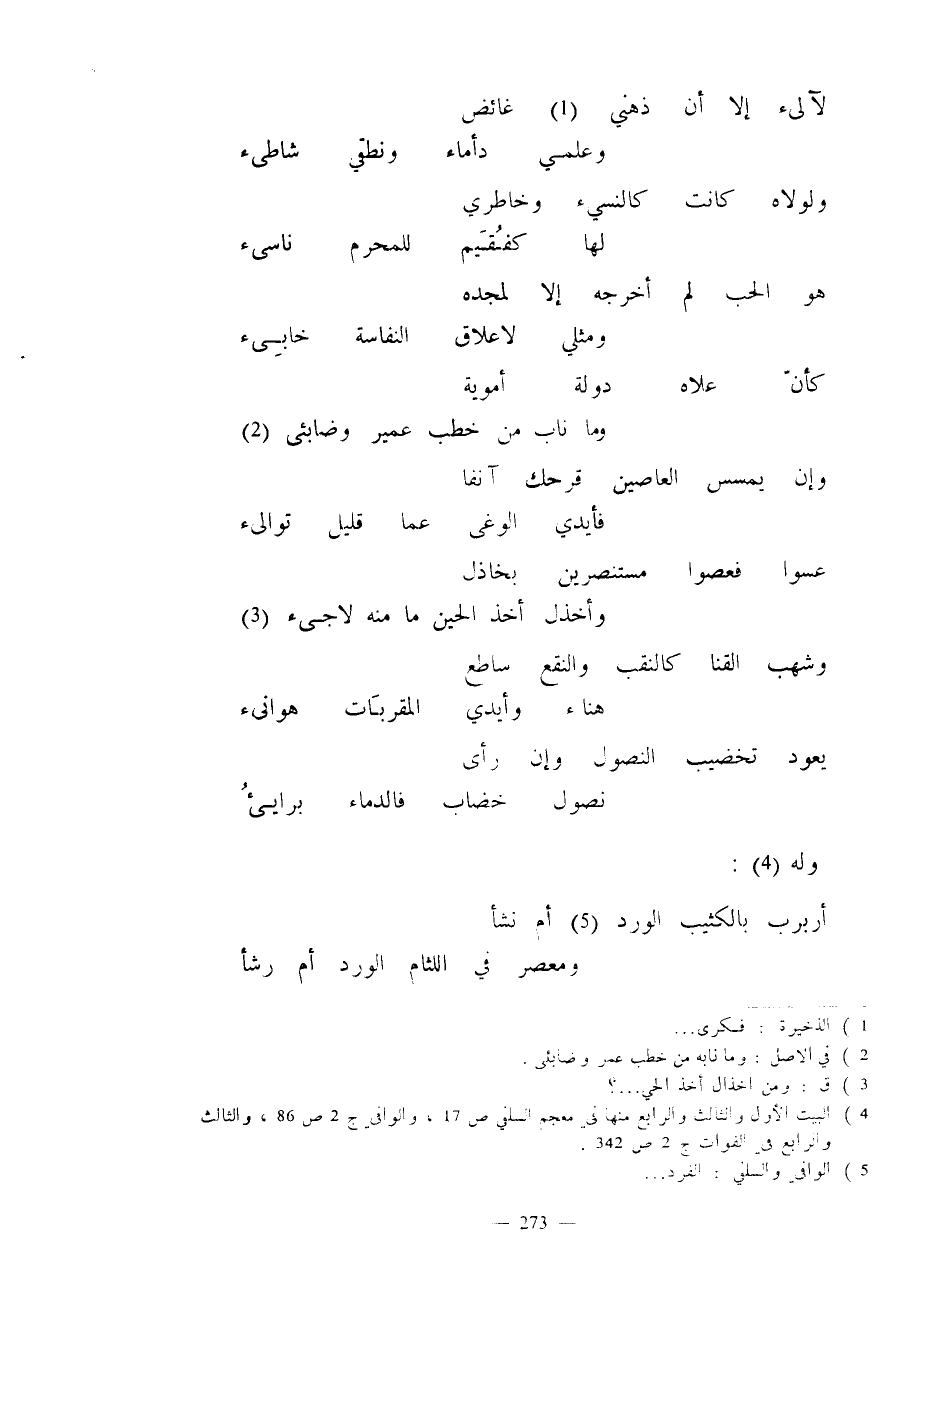 لآلىء إلا أن ذهني (1) غائض
وعلمي دأماء ونطقي شاطىء
ولولاه كانت كالنسيء وخاطري
لها كفُقَيم للمحرم ناسىء
هو الحب لم أخرجه إلا لمجده
ومثلي لاعلاق النفاسة خابىء
كأنّ علاه دولة أموية
وما ناب من خطب عمير وضابئى (2)
وإن يمسس العاصين قرحك آنفا
فأيدي الوغى عما قليل توالىء
عسوا فعصوا مستنصرين بخاذل
وأخذل أخذ الحين ما منه لاجىء (3)
وشهب القنا كالنقب والنقع ساطع
هناء وأيدي المقربَات هوانىء
يعود تخضيب النصول وإن رأى
نصول خضاب فالدماء برايئُ
وله (4) :
أربرب بالكثيب الورد (5) أم نشأ
ومعصر في اللثام الورد أم رشأ
1 ) الذخيرة : فكرى...
2 ) في الاصل : وما نابه من خطب عمر وضابئى .
3 ) ق : ومن اخذال أخذ الحي...؟
4 ) البيت الأول والثالث والرابع منها في معجم السلفي ص 17 ، والوافي ج 2 ص 86 ، والثالث
والرابع في الفوات ج 2 ص 342 .
5 ) الوافي والسلفي : الفرد...
— 273 —